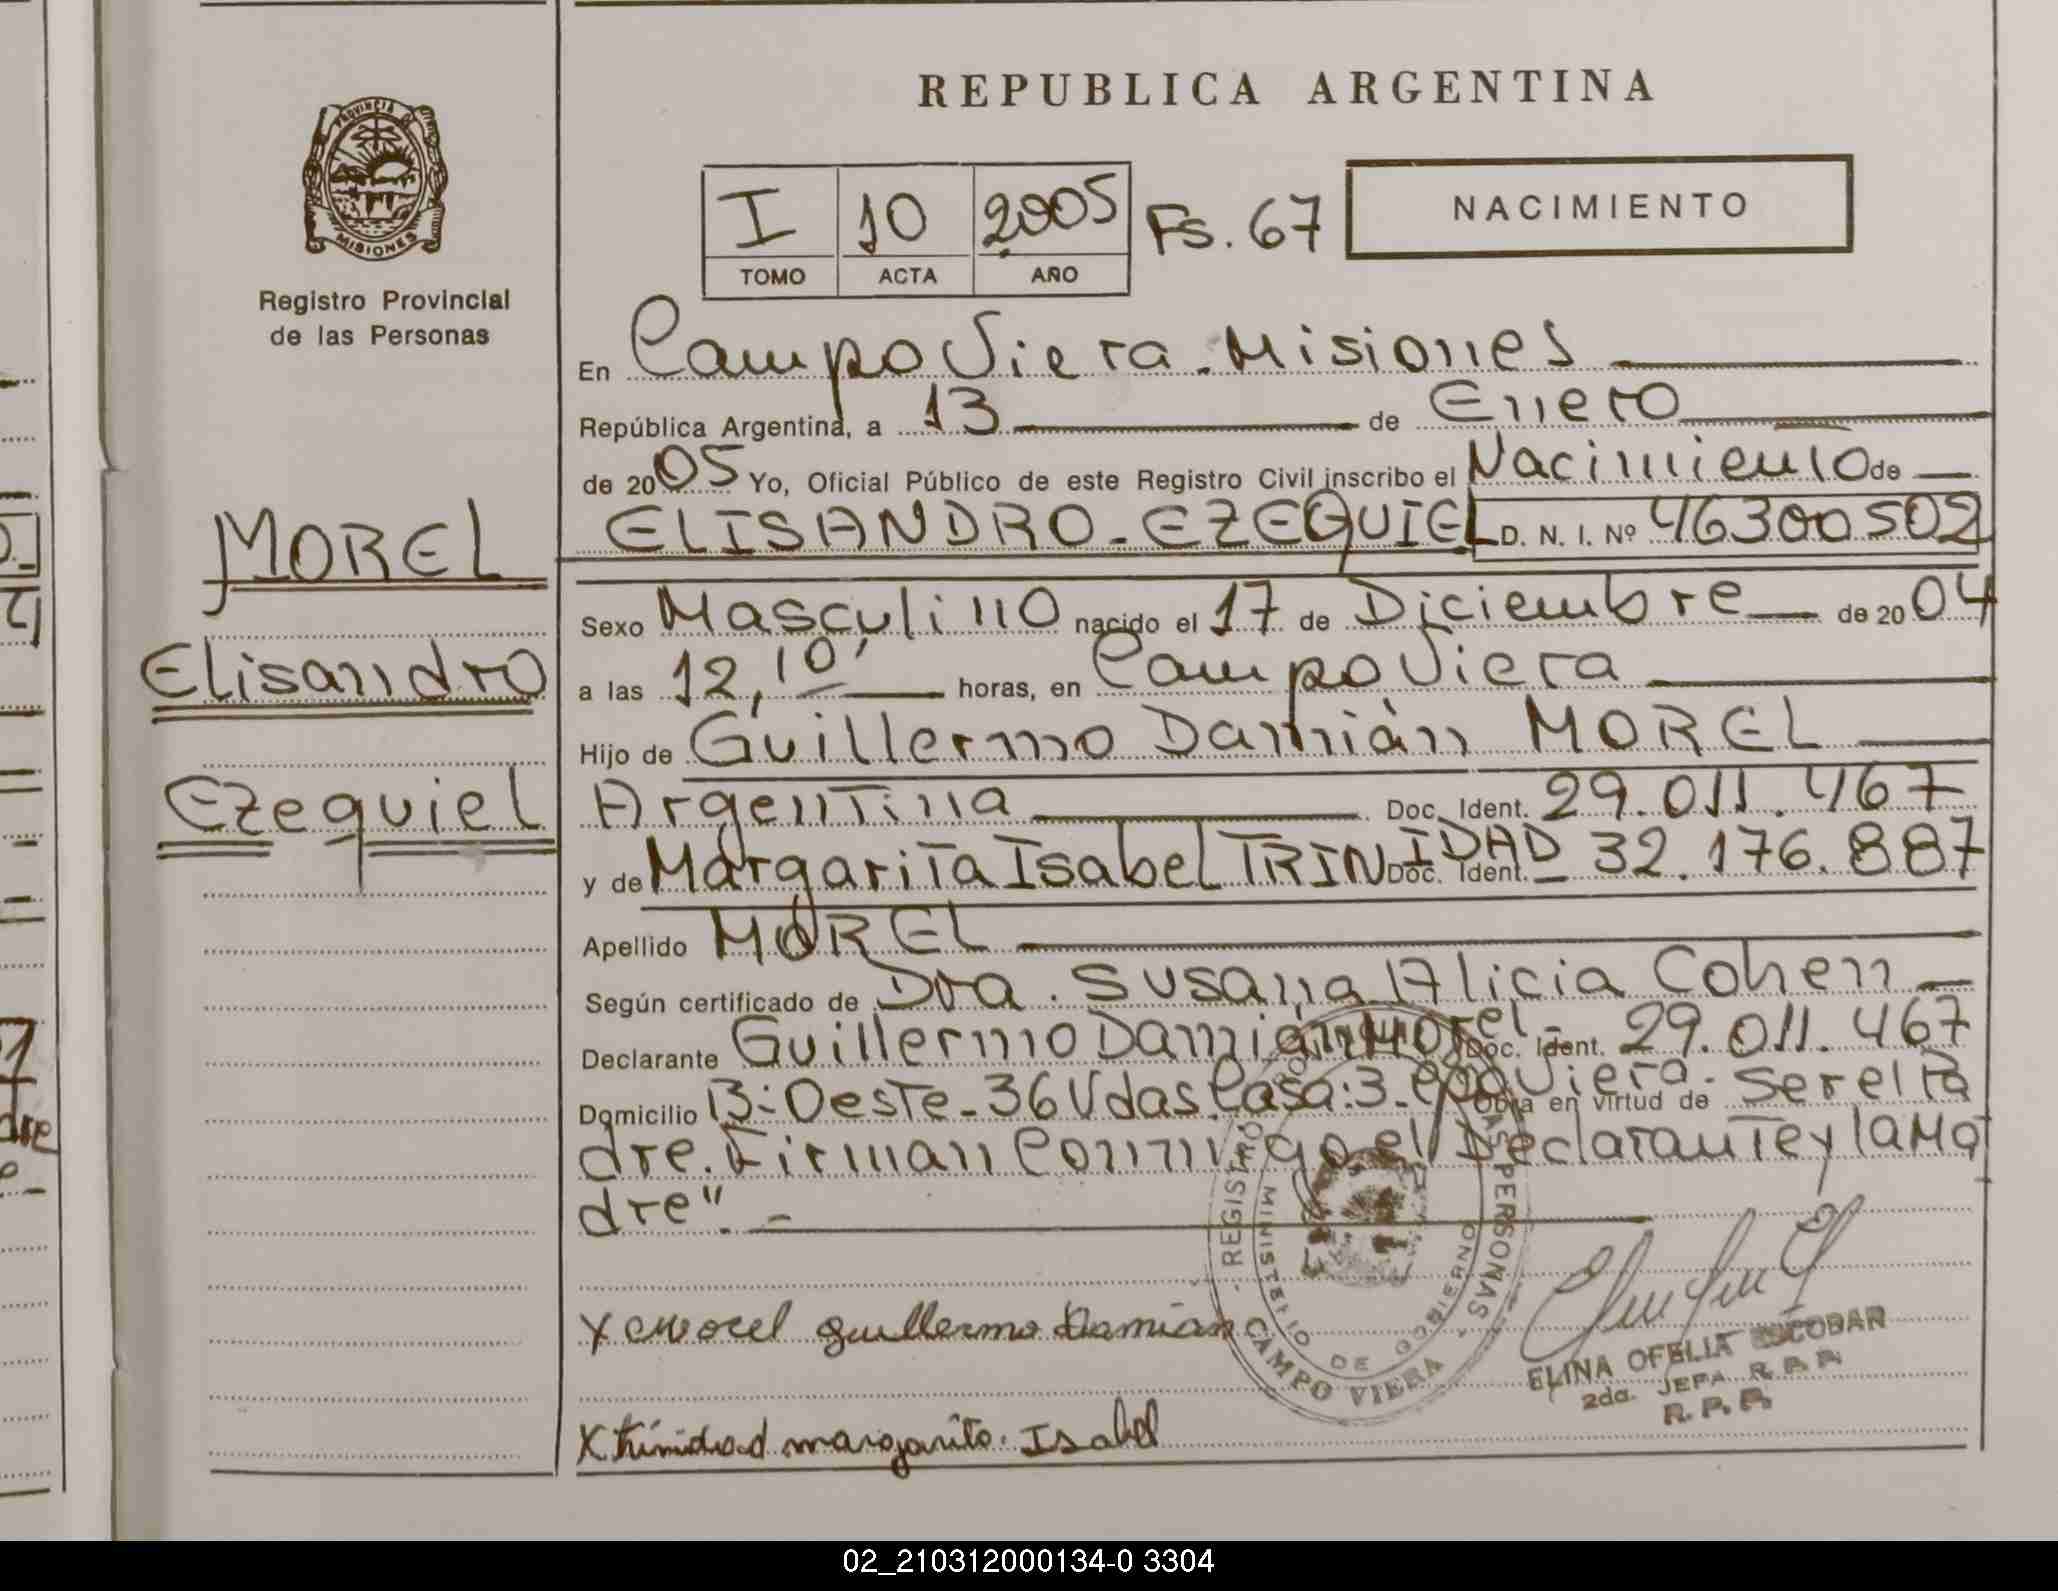 REPUBLICA ARGENTINA
PROVINCIA DE MISIONES
Registro Provincial
de las Personas
I 10 2005 Fs. 67
TOMO ACTA AÑO
NACIMIENTO
MOREL
Elisandro
Ezequiel
En Campo Viera - Misiones
República Argentina, a 13 de Enero
de 2005 Yo, Oficial Público de este Registro Civil inscribo el Nacimiento de
ELISANDRO - EZEQUIEL D. N. I. Nº 46300502
Sexo Masculino nacido el 17 de Diciembre de 2004
a las 12,10' horas, en Campo Viera
Hijo de Guillermo Damián MOREL
Argentina Doc. Ident. 29.011.467
y de Margarita Isabel TRINIDAD Doc. Ident. 32.176.887
Apellido MOREL
Según certificado de Dra. Susana Alicia Cohen
Declarante Guillermo Damián Morel - Doc. Ident. 29.011.467
Domicilio B: Oeste - 36 Vdas. Casa: 3 - Cpo Viera - Obra en virtud de Ser el Pa
dre. Firman Conmigo el Declarante y la Ma
dre". -
X Morel guillermo Damián
X trinidad margarita Isabel
REGISTRO PERSONAS
MINISTERIO DE GOBIERNO
CAMPO VIERA
ELINA OFELIA ESCOBAR
2da. JEFA R.P.P.
R.P.P.
02_210312000134-0 3304